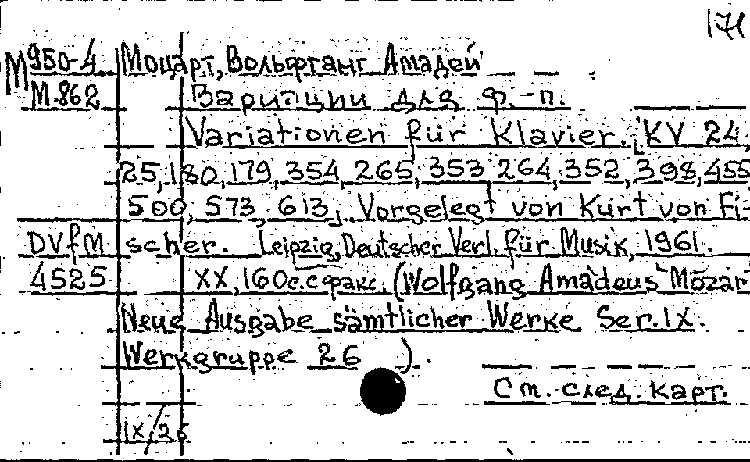 171
М950-4 Моцарт, Вольфганг Амадей
М-862 Вариации для ф.-п.
Variationen für Klavier. [KV 24,
25, 180, 179, 354, 265, 353, 264, 352, 398, 455
500, 573, 613]. Vorgelegt von Kurt von Fi-
DVfM scher. Leipzig, Deutscher Verl. für Musik, 1961.
4525 XX, 160 с. с факс. (Wolfgang Amadeus Mozar
Neue Ausgabe sämtlicher Werke Ser. IX.
Werkgruppe 26 ).
См. след. карт.
IX/26